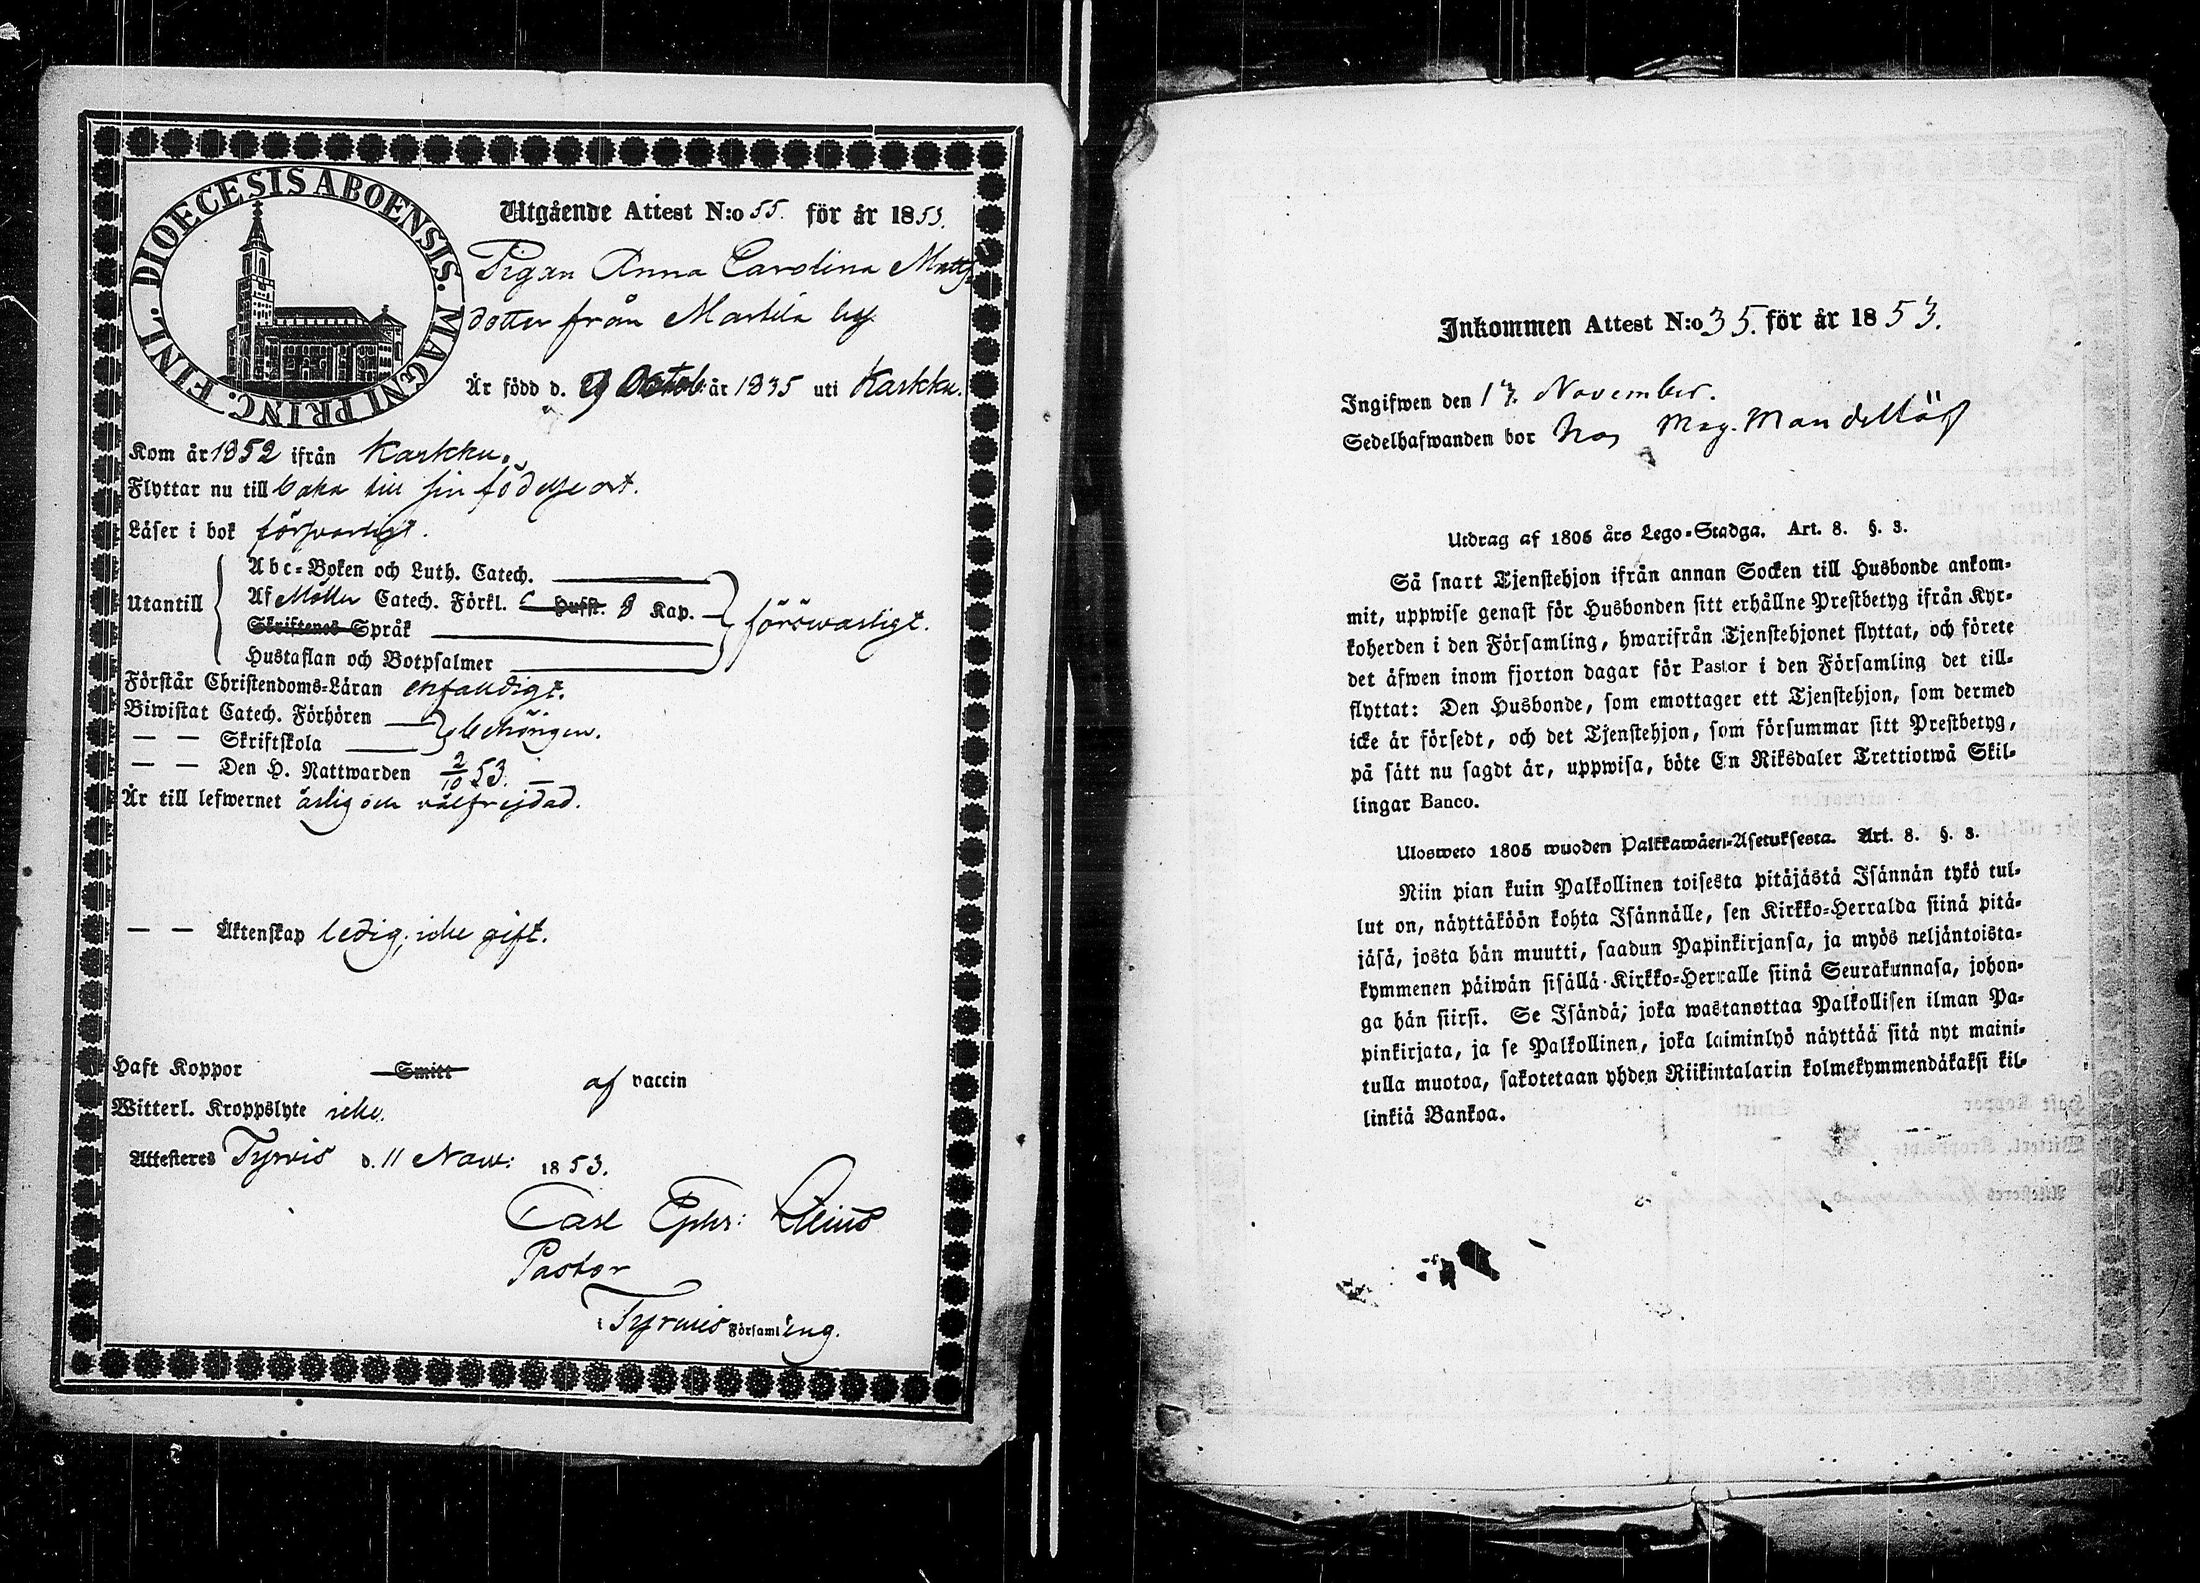 DIOECESIS ABOENSIS. MAGNI PRINC. FINL.
Utgående Attest N:o 55. för år 1853.
Pigan Anna Carolina Matts-
dotter från Marttila by.
Är född d. 29 Octob. år 1835 uti Karkku.
Kom år 1852 ifrån Karkku.
Flyttar nu till baka till sin födelseort.
Läser i bok försvarligt.
Abc-Boken och Luth. Catech.
Utantill
Af Möller Catech. Förkl. Hufst. 8 Kap.
försvarligt.
Skriftenes Språk
Hustaflan och Botpsalmer
Förstår Christendoms-Läran enfaldigt.
Biwistat Catech. Förhören
behörigen.
— — Skriftskola
— — Den H. Nattwarden 2/10 53.
Är till lefwernet ärlig och välfrejdad.
— — Äktenskap ledig, icke gift.
Haft Koppor Smitt af vaccin
Witterl. Kroppslyte icke.
Attesteres Tyrvis d. 11 Nov: 1853.
Carl Ephr:
Pastor
i Tyrvis Församling.
Inkommen Attest N:o 35. för år 1853.
Ingifwen den 17. November.
Sedelhafwanden bor hos Mag. Mandellöf
Utdrag af 1805 års Lego-Stadga. Art. 8. §. 3.
Så snart Tjenstehjon ifrån annan Socken till Husbonde ankom-
mit, uppwise genast för Husbonden sitt erhållne Prestbetyg ifrån Kyr-
koherden i den Församling, hwarifrån Tjenstehjonet flyttat, och förete
det äfwen inom fjorton dagar för Pastor i den Församling det till-
flyttat: Den Husbonde, som emottager ett Tjenstehjon, som dermed
icke är försedt, och det Tjenstehjon, som försummar sitt Prestbetyg,
på sätt nu sagdt är, uppwisa, böte En Riksdaler Trettiotwå Skil-
lingar Banco.
Ulosweto 1805 wuoden Palkkawäen-Asetuksesta. Art. 8. §. 3.
Niin pian kuin Palkollinen toisesta pitäjästä Isännän tykö tul-
lut on, näyttäköön kohta Isännälle, sen Kirkko-Herralda siinä pitä-
jäsä, josta hän muutti, saadun Papinkirjansa, ja myös neljäntoista-
kymmenen päiwän sisällä Kirkko-Herralle siinä Seurakunnasa, johon-
ga hän siirsi. Se Isändä, joka wastanottaa Palkollisen ilman Pa-
pinkirjata, ja se Palkollinen, joka laiminlyö näyttää sitä nyt maini-
tulla muotoa, sakotetaan yhden Riikintalarin kolmekymmendäkaksi kil-
linkiä Bankoa.